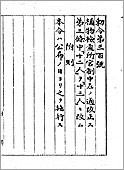 勅令第三百號
植物檢査所官制中左ノ通改正ス
第三條中「十二人」ヲ「十三人」ニ改ム
附則
本令ハ公布ノ日ヨリ之ヲ施行ス